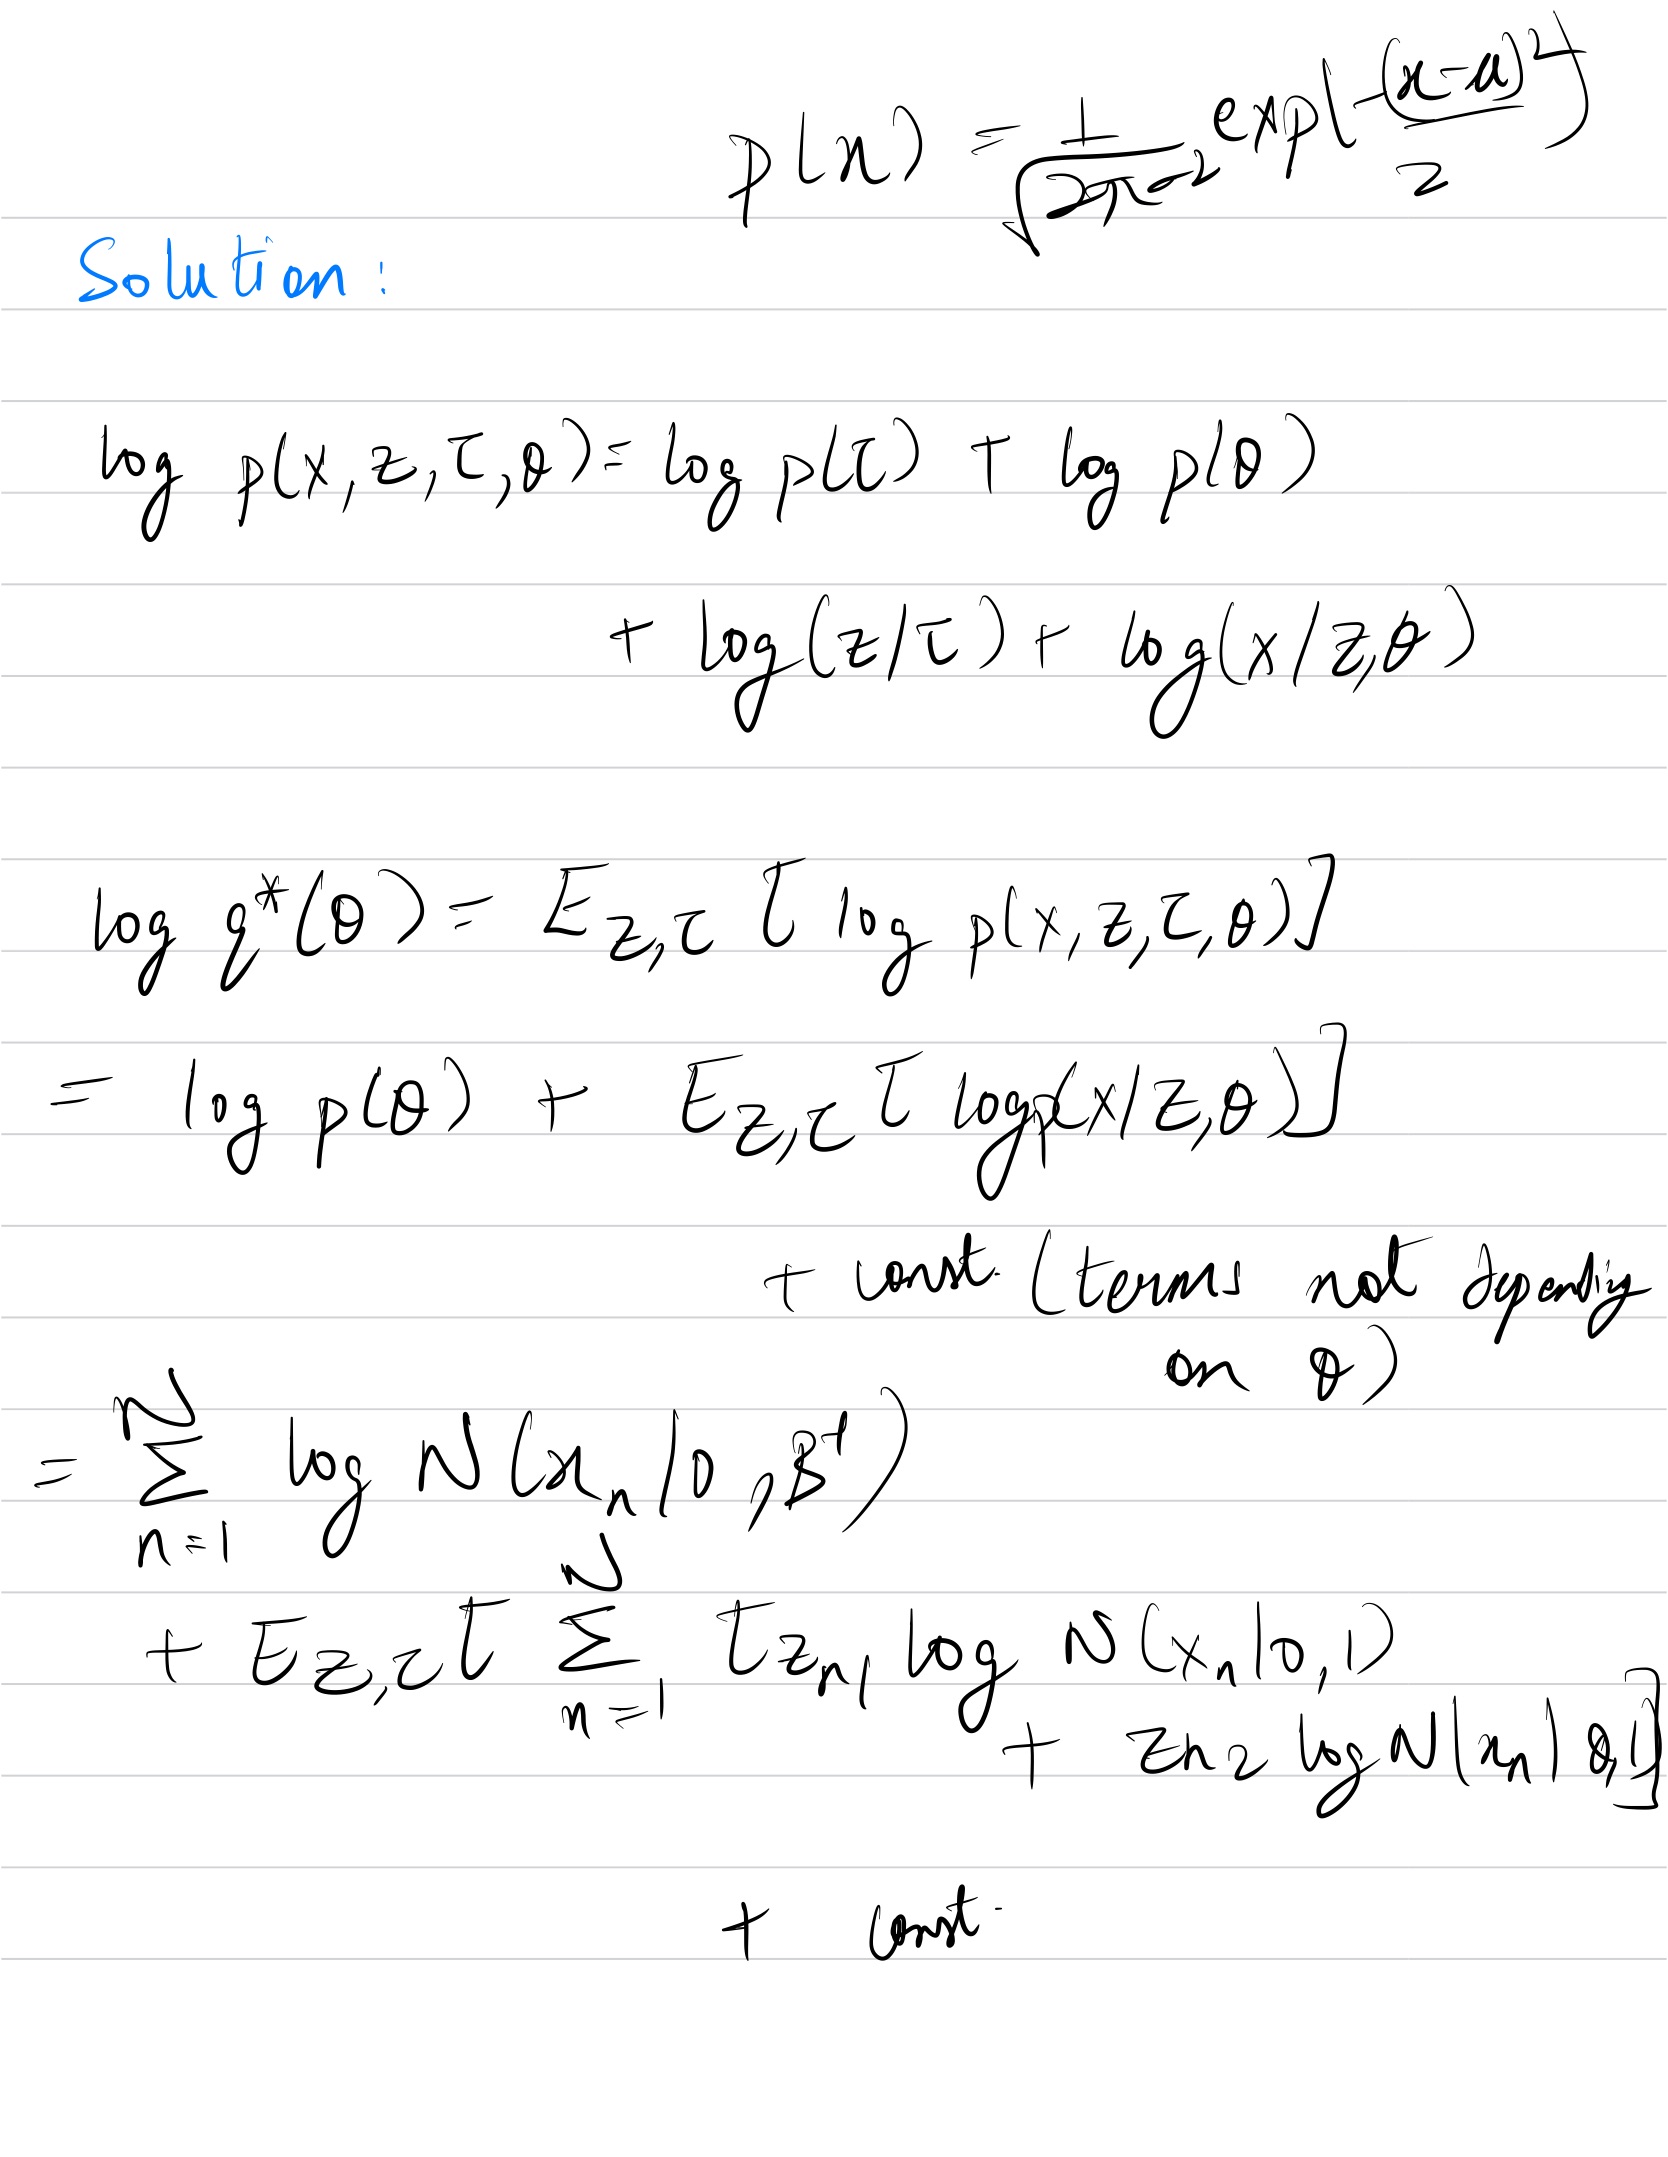 p(x) = 1/√(2πσ²) exp(-(x-μ)²/2)
Solution:
log p(x, z, τ, θ) = log p(τ) + log p(θ)
+ log(z/τ) + log(x/z,θ)
log q*(θ) = E_{z,τ} [ log p(x, z, τ, θ)]
= log p(θ) + E_{z,τ} [ log p(x/z,θ)]
+ const. (terms not depending
on θ)
= Σ_{n=1}^{N} log N(x_n | 0, β⁻¹)
+ E_{z,τ} [ Σ_{n=1}^{N} [z_{n1} log N(x_n | 0, 1)
+ z_{n2} log N(x_n | θ, 1)]
+ const.